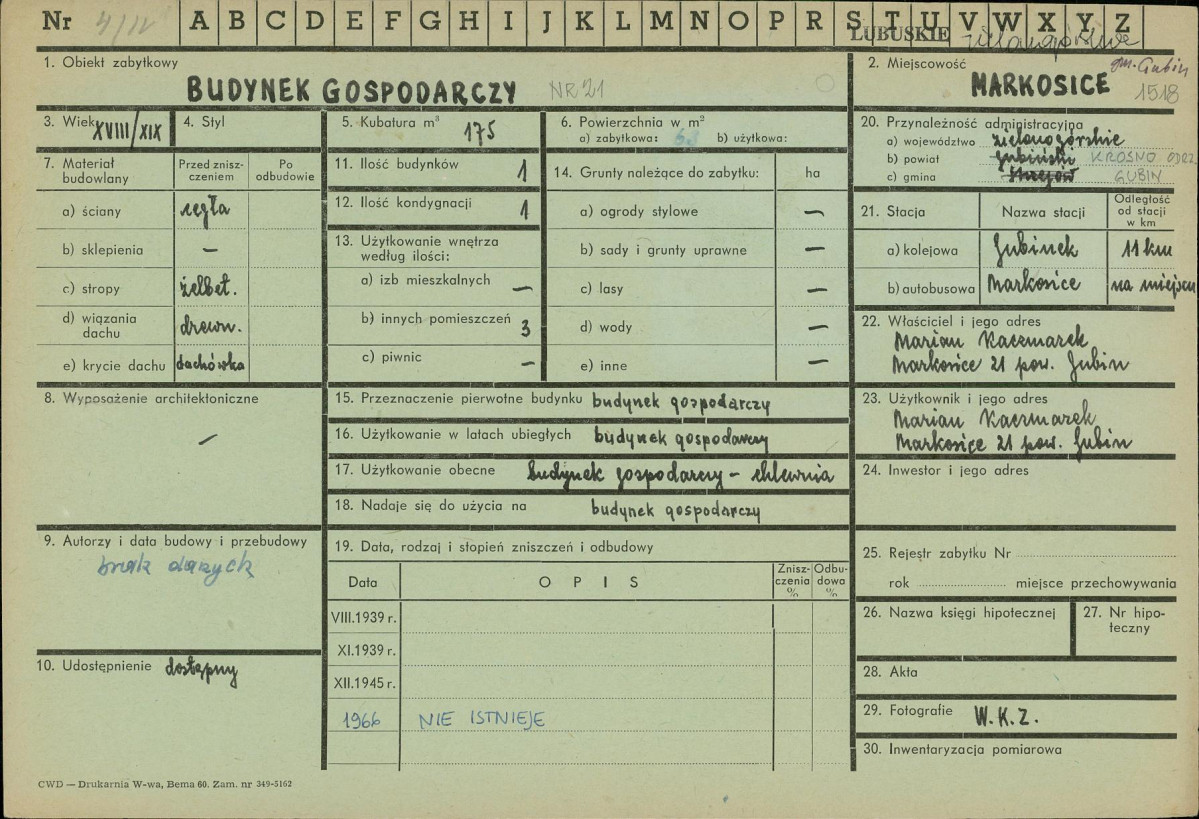 Nr 4/IV A B C D E F G H I J K L M N O P R S T U V W X Y Z
LUBUSKIE zielonogórskie
1. Obiekt zabytkowy
BUDYNEK GOSPODARCZY NR 21
2. Miejscowość gm. Gubin
MARKOSICE 1518
3. Wiek XVIII/XIX
4. Styl
5. Kubatura m³ 175
6. Powierzchnia w m²
a) zabytkowa: 63 b) użytkowa:
7. Materiał budowlany
Przed zniszczeniem
Po odbudowie
a) ściany cegła
b) sklepienia —
c) stropy żelbet.
d) wiązania dachu drewn.
e) krycie dachu dachówka
8. Wyposażenie architektoniczne
—
9. Autorzy i data budowy i przebudowy
brak danych
10. Udostępnienie dostępny
11. Ilość budynków 1
12. Ilość kondygnacji 1
13. Użytkowanie wnętrza według ilości:
a) izb mieszkalnych —
b) innych pomieszczeń 3
c) piwnic —
14. Grunty należące do zabytku: ha
a) ogrody stylowe —
b) sady i grunty uprawne —
c) lasy —
d) wody —
e) inne —
15. Przeznaczenie pierwotne budynku budynek gospodarczy
16. Użytkowanie w latach ubiegłych budynek gospodarczy
17. Użytkowanie obecne budynek gospodarczy – chlewnia
18. Nadaje się do użycia na budynek gospodarczy
19. Data, rodzaj i stopień zniszczeń i odbudowy
Data OPIS Zniszczenia % Odbudowa %
VIII.1939 r.
XI.1939 r.
XII.1945 r.
1966 NIE ISTNIEJE
20. Przynależność administracyjna
a) województwo zielonogórskie
b) powiat gubiński KROSNO ODRZ.
c) gmina GUBIN
21. Stacja Nazwa stacji Odległość od stacji w km
a) kolejowa Gubinek 11 km
b) autobusowa Markosice na miejscu
22. Właściciel i jego adres
Marian Kaczmarek
Markosice 21 pow. Gubin
23. Użytkownik i jego adres
Marian Kaczmarek
Markosice 21 pow. Gubin
24. Inwestor i jego adres
25. Rejestr zabytku Nr
rok miejsce przechowywania
26. Nazwa księgi hipotecznej
27. Nr hipoteczny
28. Akta
29. Fotografie W.K.Z.
30. Inwentaryzacja pomiarowa
CWD — Drukarnia W-wa, Bema 60. Zam. nr 349-5162